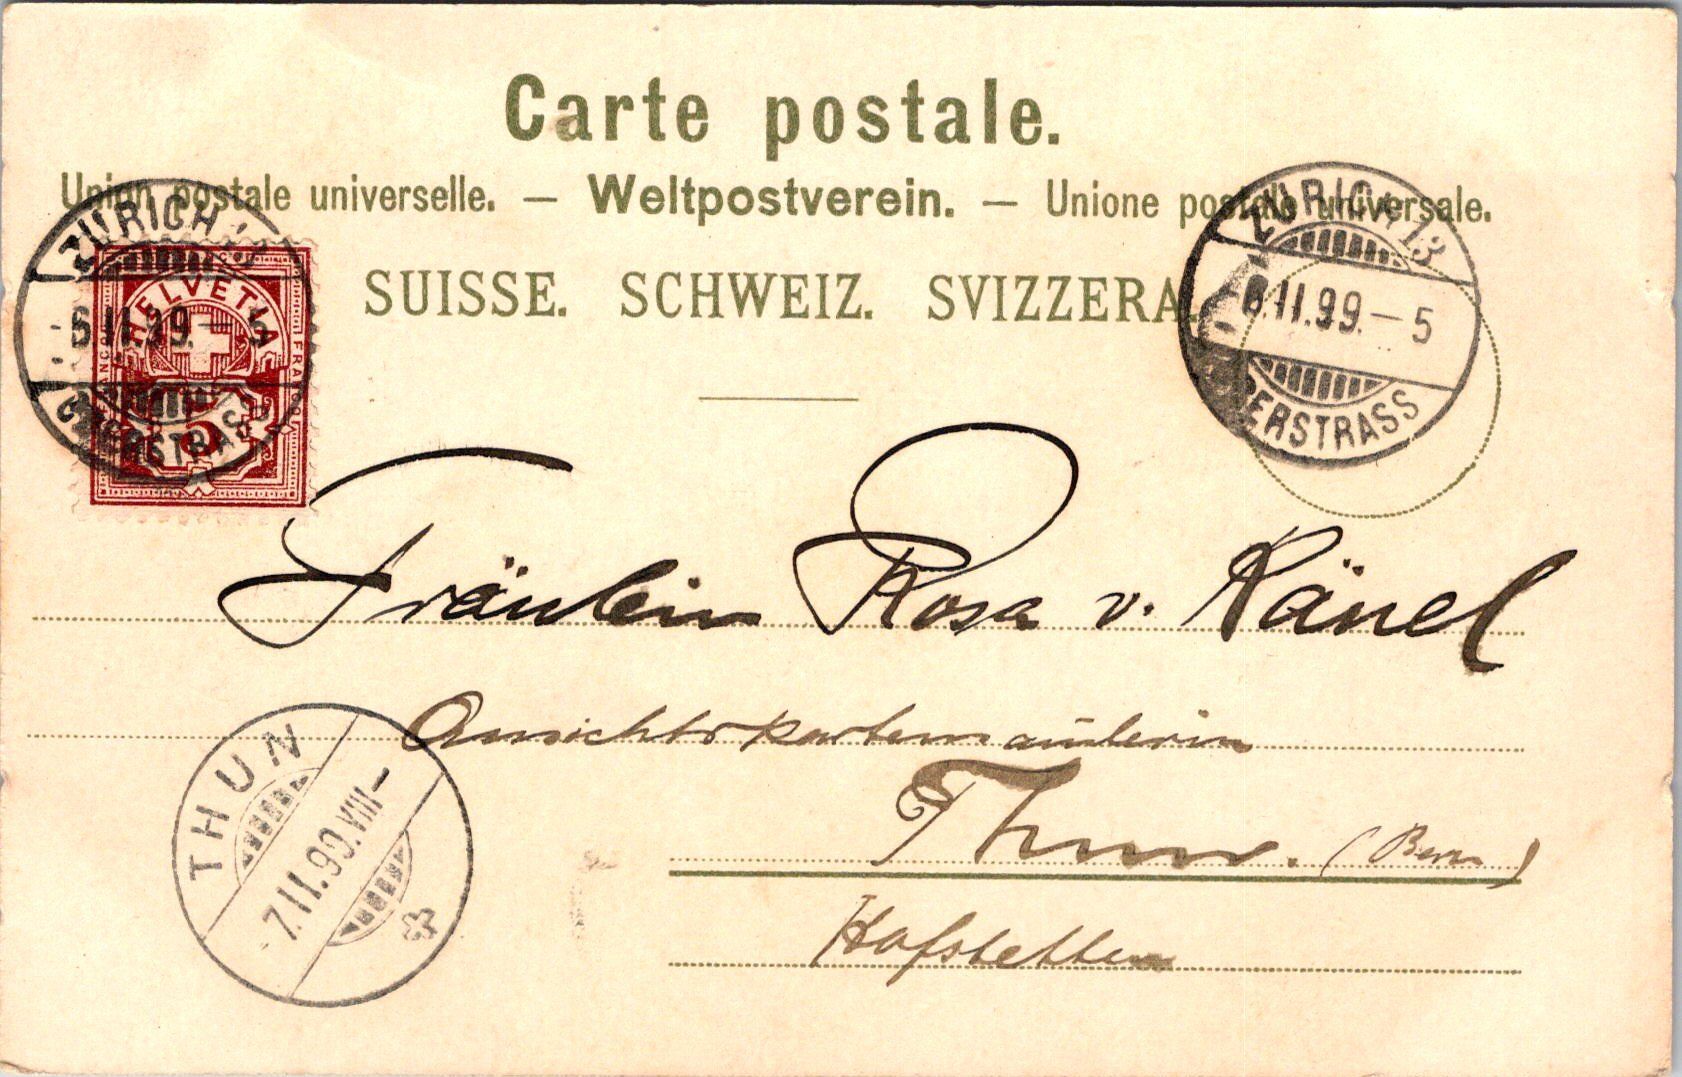 Carte postale.
Union postale universelle. — Weltpostverein. — Unione postale universale.
SUISSE. SCHWEIZ. SVIZZERA.
ZÜRICH 13
6.II.99.–5
OBERSTRASS
HELVETIA
FRANCO
FRANCO
5
ZÜRICH 13
6.II.99.–5
OBERSTRASS
Fräulein Rosa v. Känel
Ansichtskartenmalerin
Thun. (Bern)
Hofstetten
THUN
7.II.99.VIII–